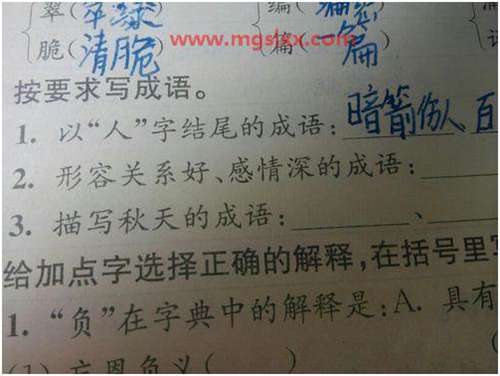 翠(翠绿 编(编
脆(清脆) 篇(一篇)
www.mgslxx.com
按要求写成语。
1. 以“人”字结尾的成语:暗箭伤人 百
2. 形容关系好、感情深的成语:
3. 描写秋天的成语: 、
给加点字选择正确的解释,在括号里写
1. “负”在字典中的解释是:A. 具有
(1) 忘恩负义( ) (